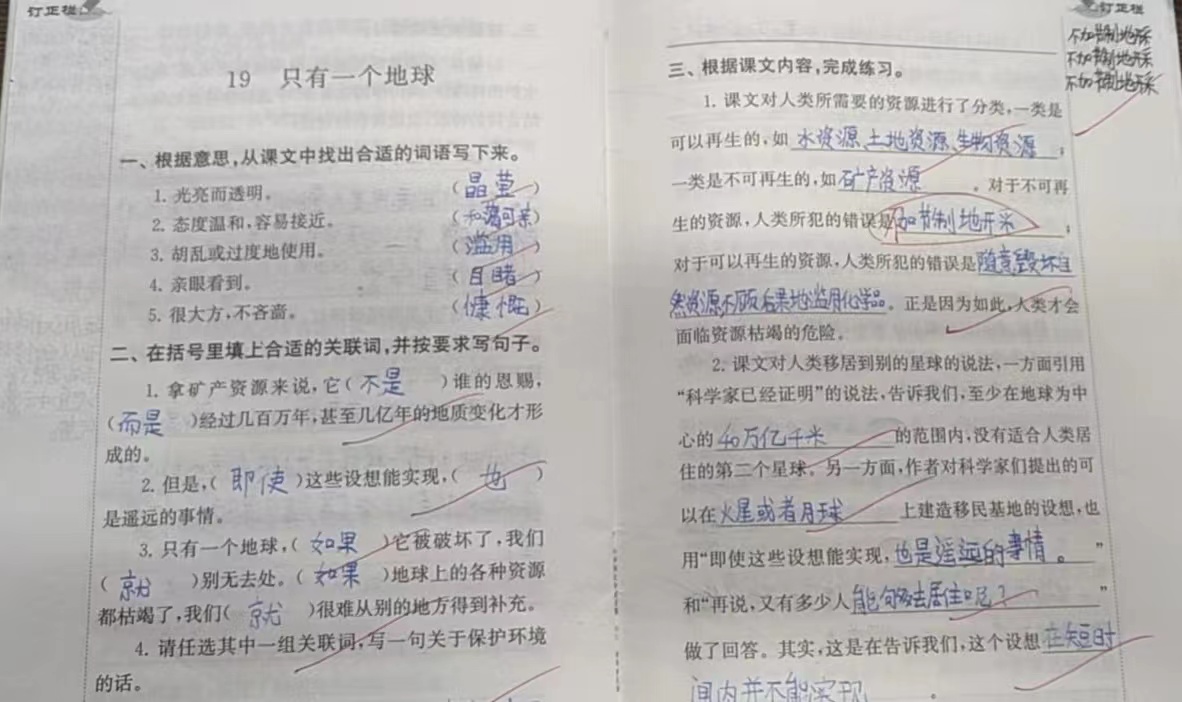 订正栏
19 只有一个地球
一、根据意思,从课文中找出合适的词语写下来。
1. 光亮而透明。 (晶莹)
2. 态度温和,容易接近。 (和蔼可亲)
3. 胡乱或过度地使用。 (滥用)
4. 亲眼看到。 (目睹)
5. 很大方,不吝啬。 (慷慨)
二、在括号里填上合适的关联词,并按要求写句子。
1. 拿矿产资源来说,它(不是)谁的恩赐,
(而是)经过几百万年,甚至几亿年的地质变化才形
成的。
2. 但是,(即使)这些设想能实现,(也)
是遥远的事情。
3. 只有一个地球,(如果)它被破坏了,我们
(就)别无去处。(如果)地球上的各种资源
都枯竭了,我们(就)很难从别的地方得到补充。
4. 请任选其中一组关联词,写一句关于保护环境
的话。
订正栏
不加节制地采
不加节制地采
不加节制地采
三、根据课文内容,完成练习。
1. 课文对人类所需要的资源进行了分类,一类是
可以再生的,如水资源、土地资源、生物资源;
一类是不可再生的,如矿产资源。对于不可再
生的资源,人类所犯的错误是不加节制地开采;
对于可以再生的资源,人类所犯的错误是随意毁坏自
然资源,不顾后果地滥用化学品。正是因为如此,人类才会
面临资源枯竭的危险。
2. 课文对人类移居到别的星球的说法,一方面引用
“科学家已经证明”的说法,告诉我们,至少在地球为中
心的40万亿千米的范围内,没有适合人类居
住的第二个星球。另一方面,作者对科学家们提出的可
以在火星或者月球上建造移民基地的设想,也
用“即使这些设想能实现,也是遥远的事情。”
和“再说,又有多少人能够去居住呢?”
做了回答。其实,这是在告诉我们,这个设想在短时
间内并不能实现。